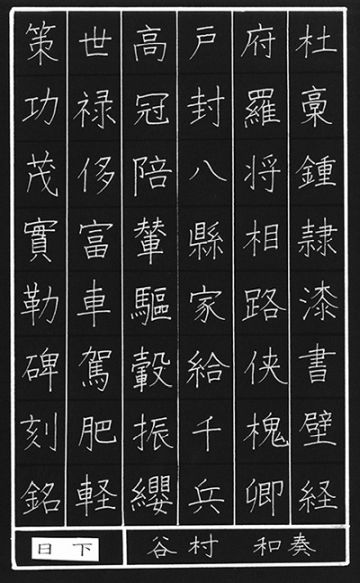 杜稾鍾隷漆書壁経
府羅将相路侠槐卿
戸封八縣家給千兵
高冠陪輦驅轂振纓
世禄侈富車駕肥軽
策功茂實勒碑刻銘
日下
谷村 和奏